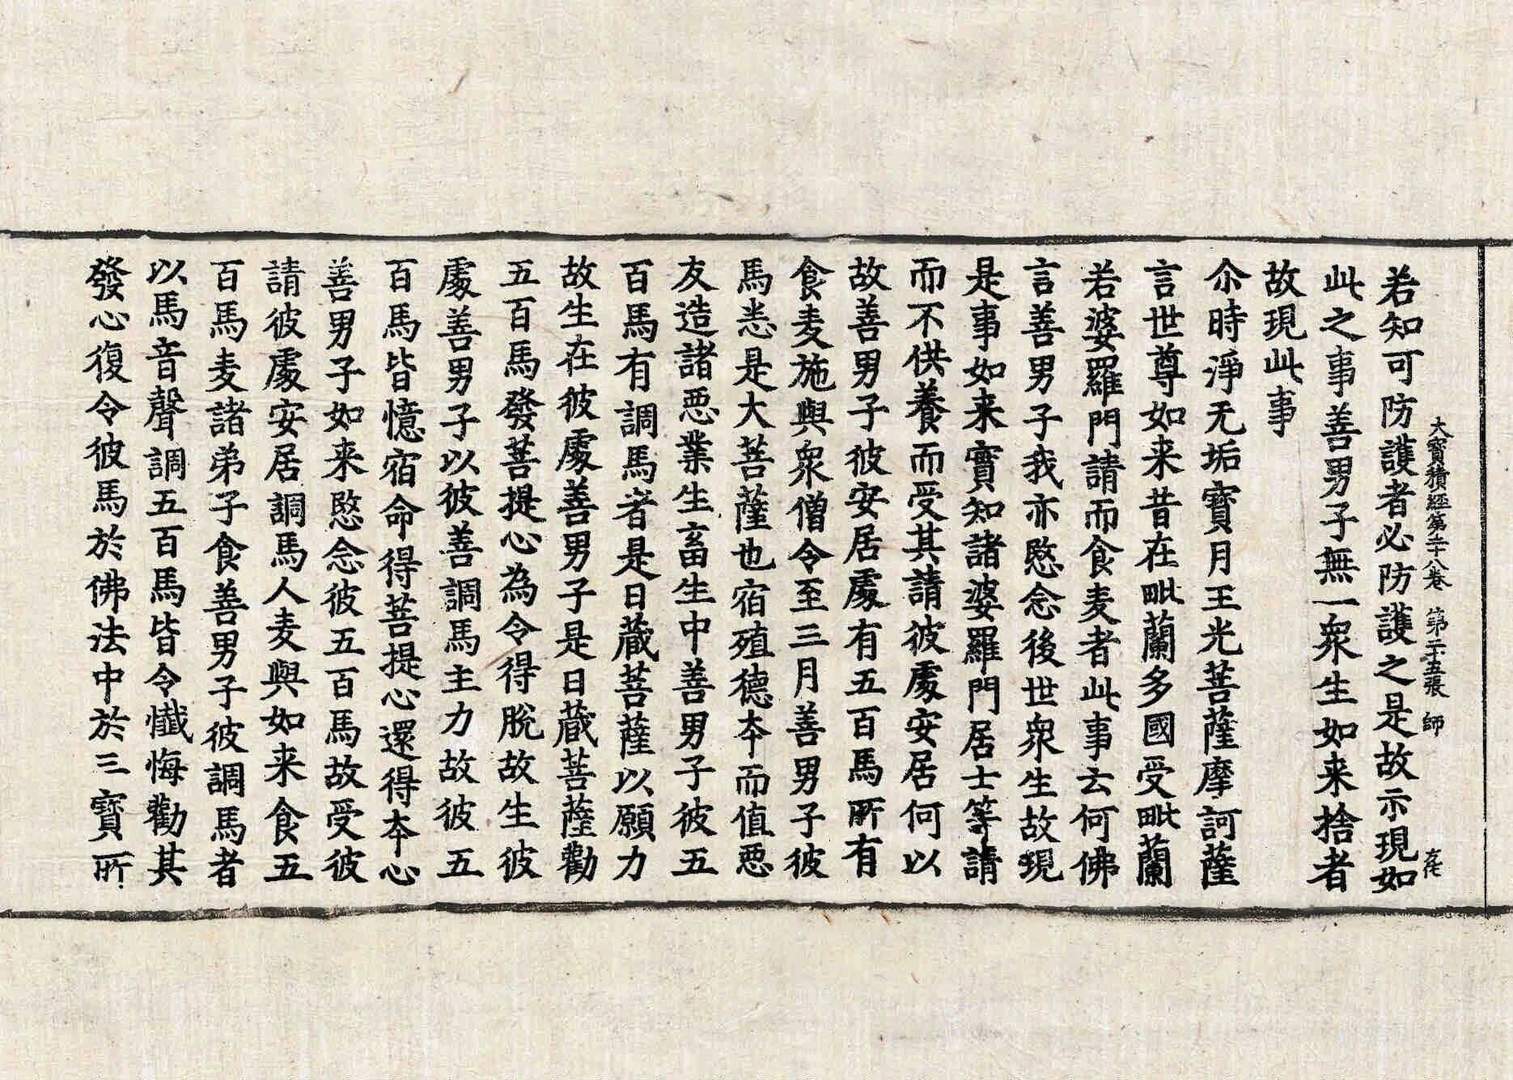 大寶積經第二十八卷 第二十五張 師
若知可防護者必防護之是故示現如
此之事善男子無一衆生如来捨者
故現此事
尒時淨无垢寶月王光菩薩摩訶薩
言世尊如来昔在毗蘭多國受毗蘭
若婆羅門請而食麦者此事云何佛
言善男子我亦愍念後世衆生故現
是事如来實知諸婆羅門居士等請
而不供養而受其請彼處安居何以
故善男子彼安居處有五百馬所有
食麦施與衆僧令至三月善男子彼
馬悉是大菩薩也宿殖德夲而值惡
友造諸惡業生畜生中善男子彼五
百馬有調馬者是日蔵菩薩以願力
故生在彼處善男子是日蔵菩薩勸
五百馬發菩提心為令得脫故生彼
處善男子以彼善調馬主力故彼五
百馬皆憶宿命得菩提心還得夲心
善男子如来愍念彼五百馬故受彼
請彼處安居調馬人麦與如来食五
百馬麦諸弟子食善男子彼調馬者
以馬音聲調五百馬皆令懺悔勸其
發心復令彼馬於佛法中於三寶所